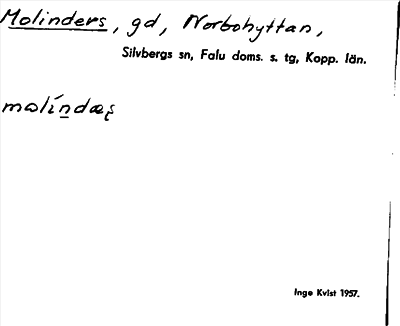 Molinders, gd, Norbohyttan,
Silvbergs sn, Falu doms. s. tg, Kopp. län.
Inge Kvist 1957.